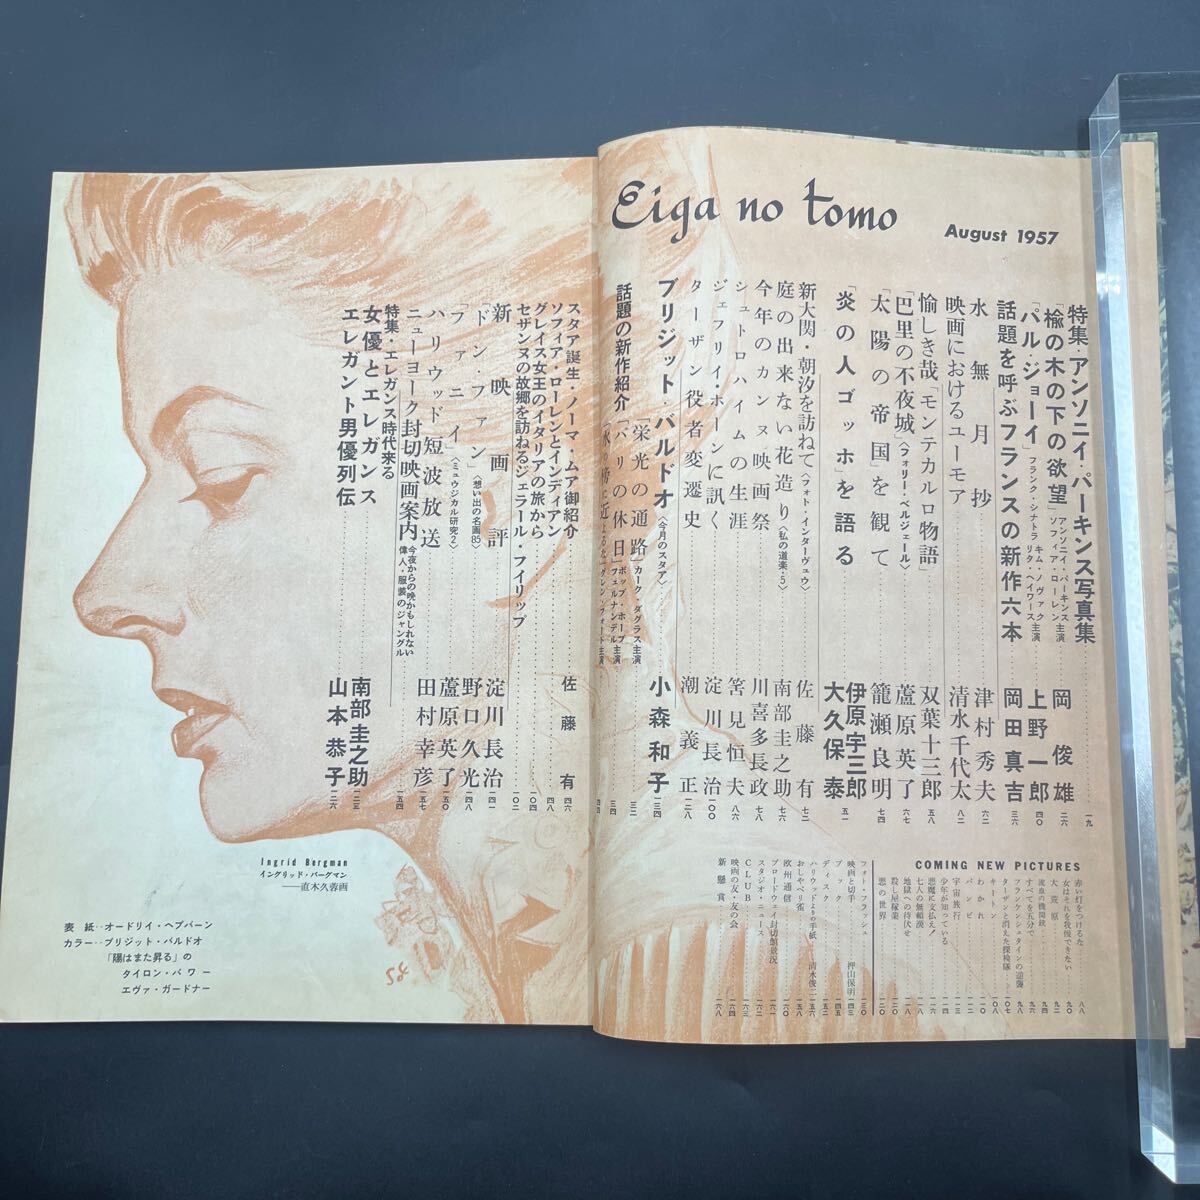 Eiga no tomo
August 1957
特集・アンソニイ・パーキンス写真集 一九
「楡の木の下の欲望」アンソニイ・パーキンス ソフィア・ローレン主演 岡俊雄 二六
「パル・ジョーイ」フランク・シナトラ キム・ノヴァク リタ・ヘイワース主演 上野一郎 四〇
話題を呼ぶフランスの新作六本 岡田真吉 三六
水無月抄 津村秀夫 六二
映画におけるユーモア 清水千代太 八二
愉しき哉「モンテカルロ物語」 双葉十三郎 五八
「巴里の不夜城」〈フォリー・ベルジェール〉 蘆原英了 六七
「太陽の帝国」を観て 籠瀬良明 七四
「炎の人ゴッホ」を語る 伊原宇三郎 大久保泰 五一
新大関・朝汐を訪ねて〈フォト・インターヴュウ〉 佐藤有 七二
庭の出来ない花造り〈私の道楽・5〉 南部圭之助 七六
今年のカンヌ映画祭 川喜多長政 七八
シュトロハイムの生涯 筈見恒夫 八六
ジェフリイ・ホーンに訊く 淀川長治 一〇〇
ターザン役者変遷史 潮義正 一二八
ブリジット・バルドオ〈今月のスタア〉 小森和子 一三四
話題の新作紹介
「栄光の通路」カーク・ダグラス主演 三二
「パリの休日」ボップ・ホープ フェルナンデル主演 三四
四四
スタア誕生・ノーマ・ムア御紹介 佐藤有 四六
ソフィア・ローレンとインディアン 四八
グレイス女王のイタリアの旅から 一〇四
セザンヌの故郷を訪ねるジェラール・フィリップ 一〇二
新映画評 淀川長治 一四一
「ドン・ファン」〈想い出の名画85〉 野口久光 一四八
「ファニイ」〈ミュウジカル研究2〉 蘆原英了 一五〇
ハリウッド短波放送 田村幸彦 一五七
ニューヨーク封切映画案内 今夜からの晩かもしれない 偉人・服装のジャングル 一五四
特集・エレガンス時代来る
女優とエレガンス 南部圭之助 一二五
エレガント男優列伝 山本恭子 一二六
COMING NEW PICTURES
赤い灯をつけるな 八八
女はそれを我慢できない 九〇
大荒原 九二
流血の機関銃 九四
すべてを五分で 九六
フランケンシュタインの逆襲 九八
ターザンと消えた探検隊 一〇七
キートン 一〇八
わかれ 一一〇
バンビ 一一二
宇宙旅行 一一三
少年が知っている 一一四
悪魔に支払え! 一一六
七人の無頼漢
地獄への待伏せ 一一八
殺し屋稼業 一二〇
悪の世界 一二〇
フォト・フラッシュ 一三〇
映画と切手 押山保明 一四三
ブック
ディスク 一五二
ハリウッドよりの手紙 清水俊二 一五六
おしゃべり雀 一五八
欧州通信 一六〇
ブロードウェイ封切館景況 一六一
スタジオ・ニュース 一六二
CLUB 一六三
映画の友・友の会 一六四
新懸賞 一六八
Ingrid Bergman
イングリッド・バーグマン
――直木久蓉画
表紙‥オードリイ・ヘプバーン
カラー‥ブリジット・バルドオ
「陽はまた昇る」の
タイロン・パワー
エヴァ・ガードナー